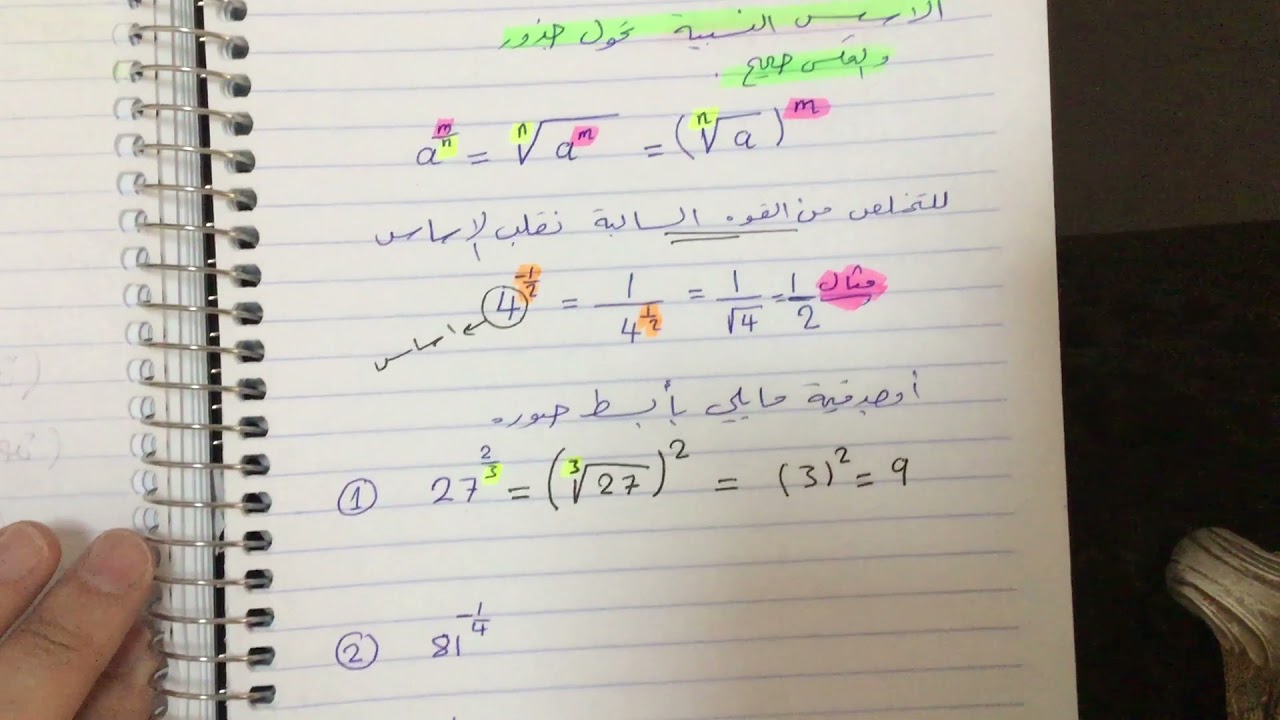 الأسس النسبية تحول جذور
والعكس صحيح .
a^{m/n} = ⁿ√(a^m) = (ⁿ√a)^m
للتخلص من القوه السالبة نقلب الاساس
4^{-1/2} = 1/4^{1/2} = 1/√4 = 1/2 مثال
اساس
أوجد قيمة مايلي بأبسط صوره
① 27^{2/3} = (³√27)^2 = (3)^2 = 9
② 81^{-1/4}